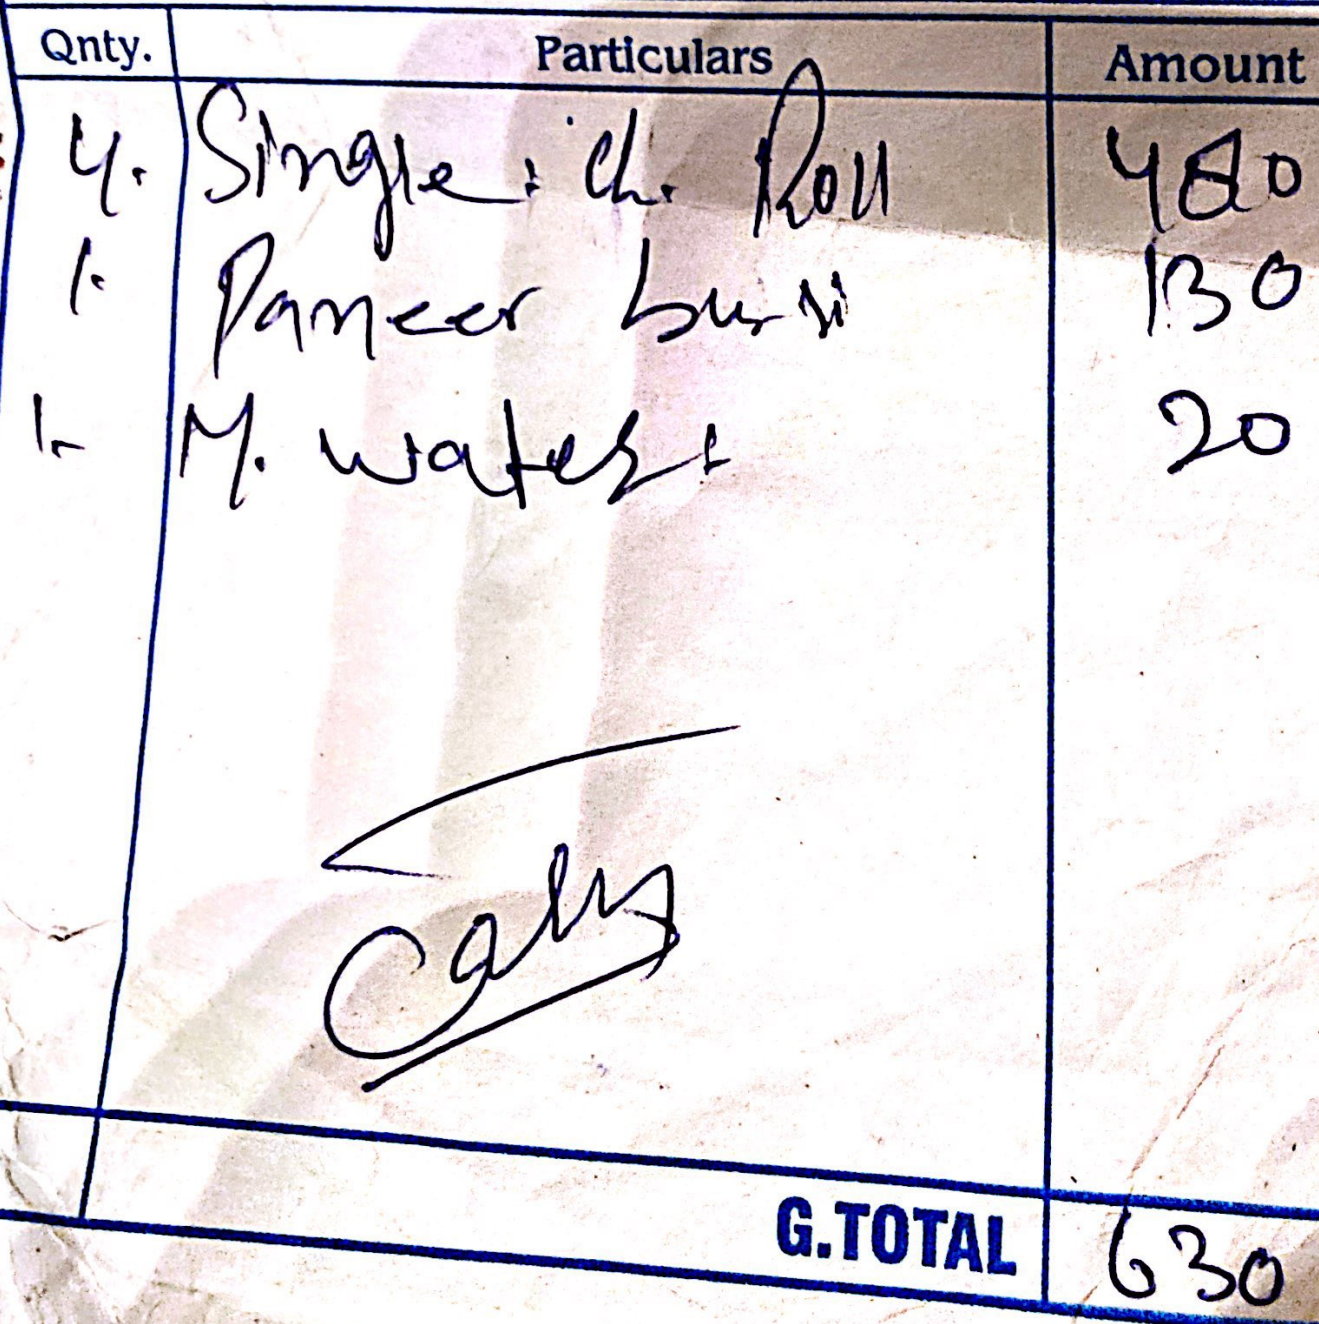 Qnty. Particulars Amount
4. Single. ch. Roll 480
1. Paneer 130
1. M. water. 20
G.TOTAL 630